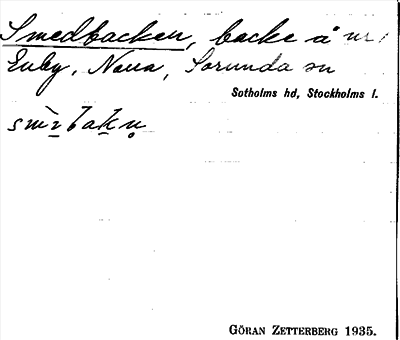 Smedbacken, backe å nr
Enby, Norra, Sorunda sn
Sotholms hd, Stockholms l.
GÖRAN ZETTERBERG 1935.